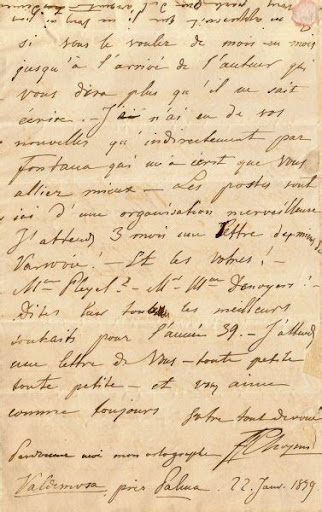 si vous le voulez de mois en mois
jusqu'à l'arrivée de l'auteur qui
vous dira plus qu'il ne sait
écrire. – J'ai n'ai eu de vos
nouvelles qu'indirectement par
Fontana qui m'a écrit que vous
alliez mieux – Les postes sont
ici d'une organisation merveilleuse
J'attends 3 mois une lettre des miens de
Varsovie! – Et les vôtres! –
Mme Pleyel? – Mr. Mme Denoyers! –
Dites leur tous les meilleurs
souhaits pour l'année 39. – J'attends
une lettre de Vous – toute petite
toute petite – et vous aime
comme toujours
Votre tout dévoué
Pardonnez moi mon ortographe
FF Chopin
Valdemosa, près Palma 22. Janv. 1839.